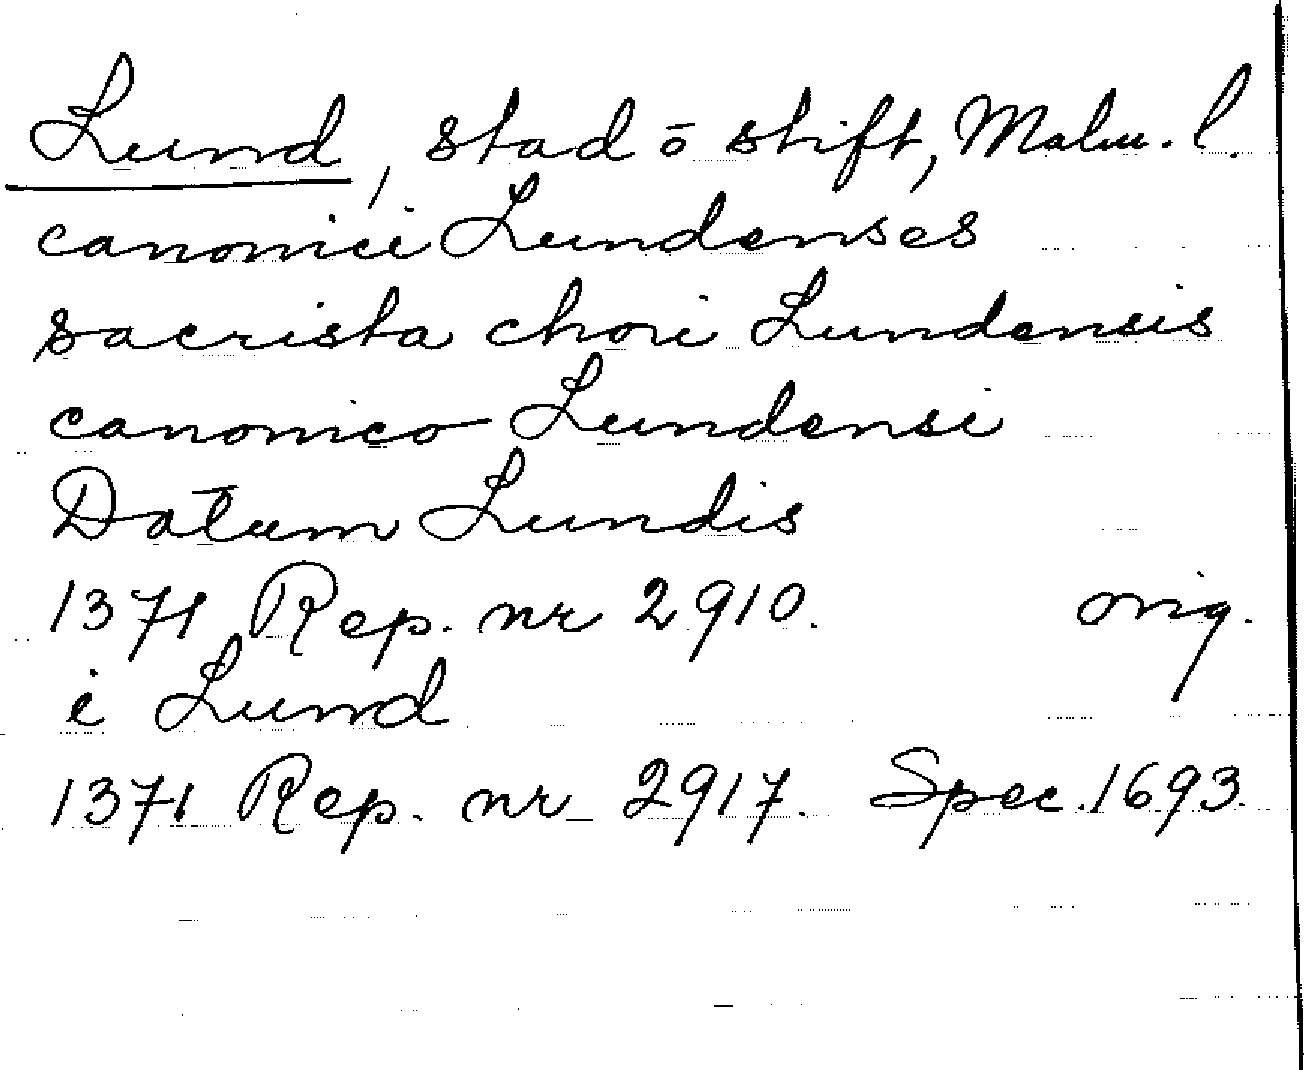 Lund, stad ō stift, Malm. l.
canonici Lundenses
sacrista chori Lundensis
canonico Lundensi
Datum Lundis
1371 Rep. nr 2910. orig.
i Lund
1371 Rep. nr 2917. Spec. 1693.